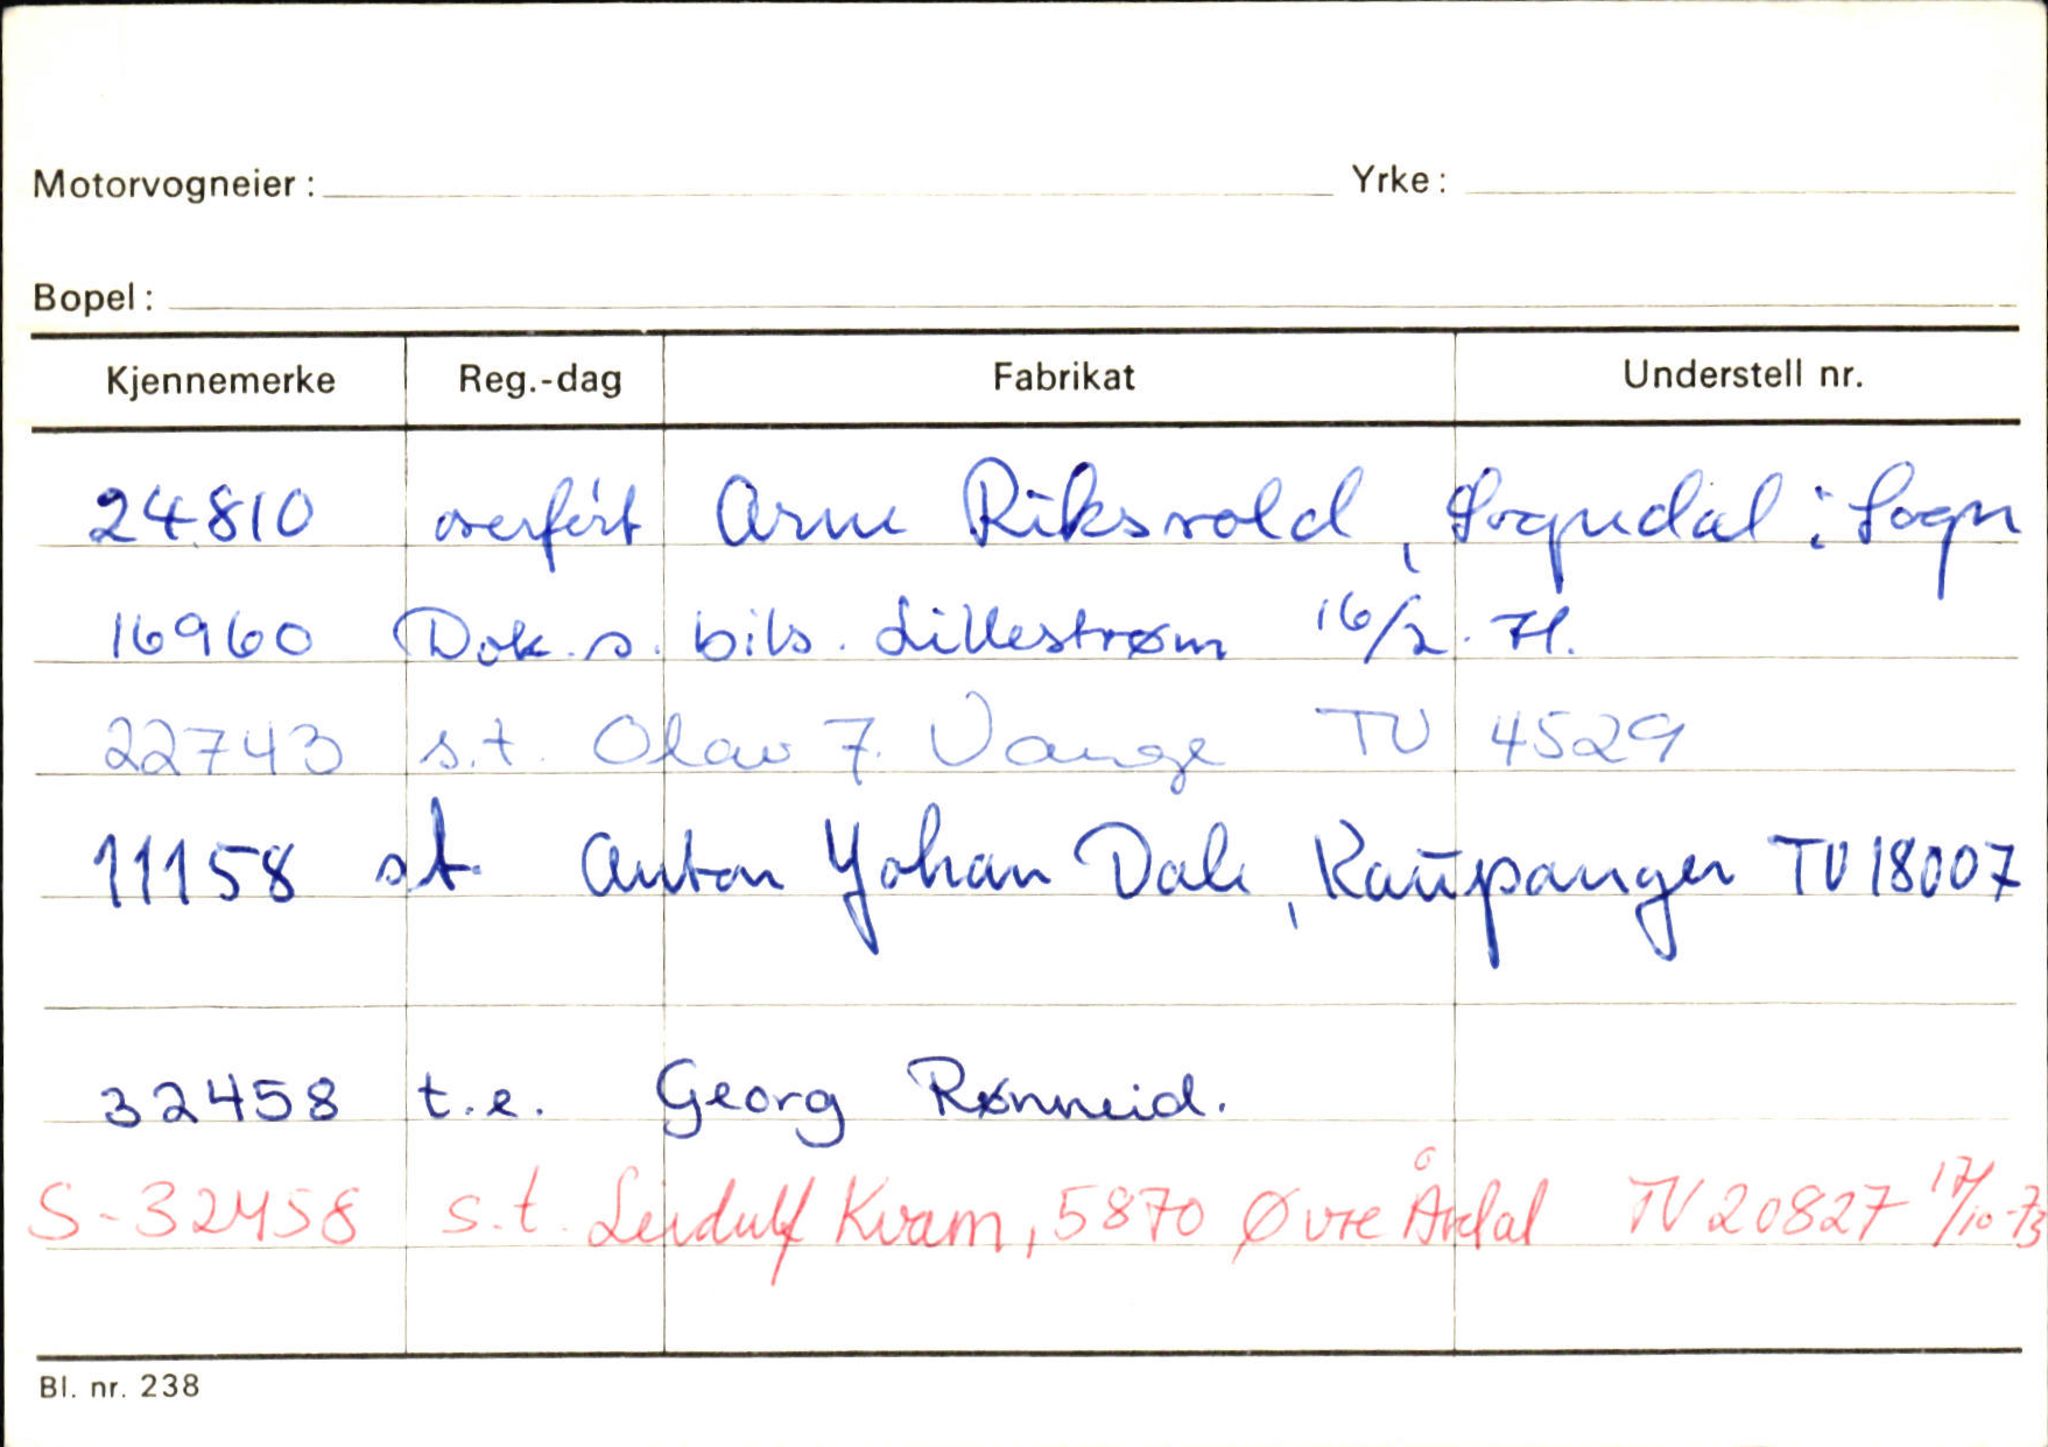 Motorvogneier: Yrke:
Bopel:
Kjennemerke Reg.-dag Fabrikat Understell nr.
24810 overført Arne Riksvold, Sogndal i Sogn
16960 Dok. s. bils. Lillestrøm 16/2. 71.
22743 s.t. Olav J. Vange TU 4529
11158 s.t. Anton Johan Dale, Kaupanger TU 18007
32458 t.e. Georg Rønneid.
S-32458 s.t. Leidulf Kvam, 5870 Øvre Årdal TU 20827 17/10-73
Bl. nr. 238